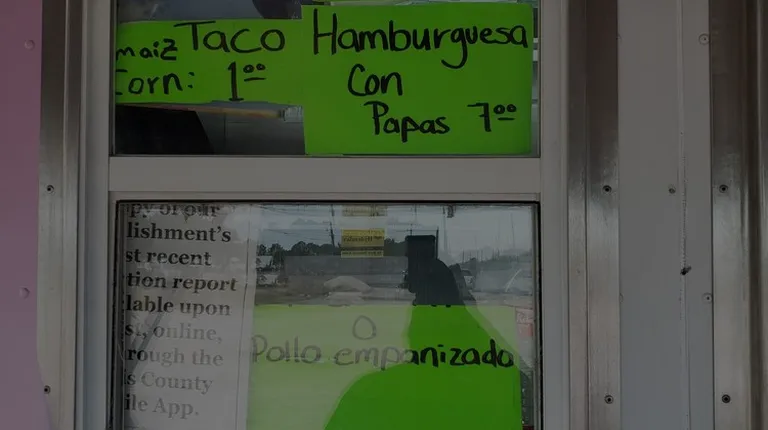 maiz Taco
Corn: 1⁰⁰
Hamburguesa
Con
Papas 7⁰⁰
py of our
lishment's
st recent
tion report
lable upon
st, online,
rough the
s County
ile App.
O
Pollo empanizado